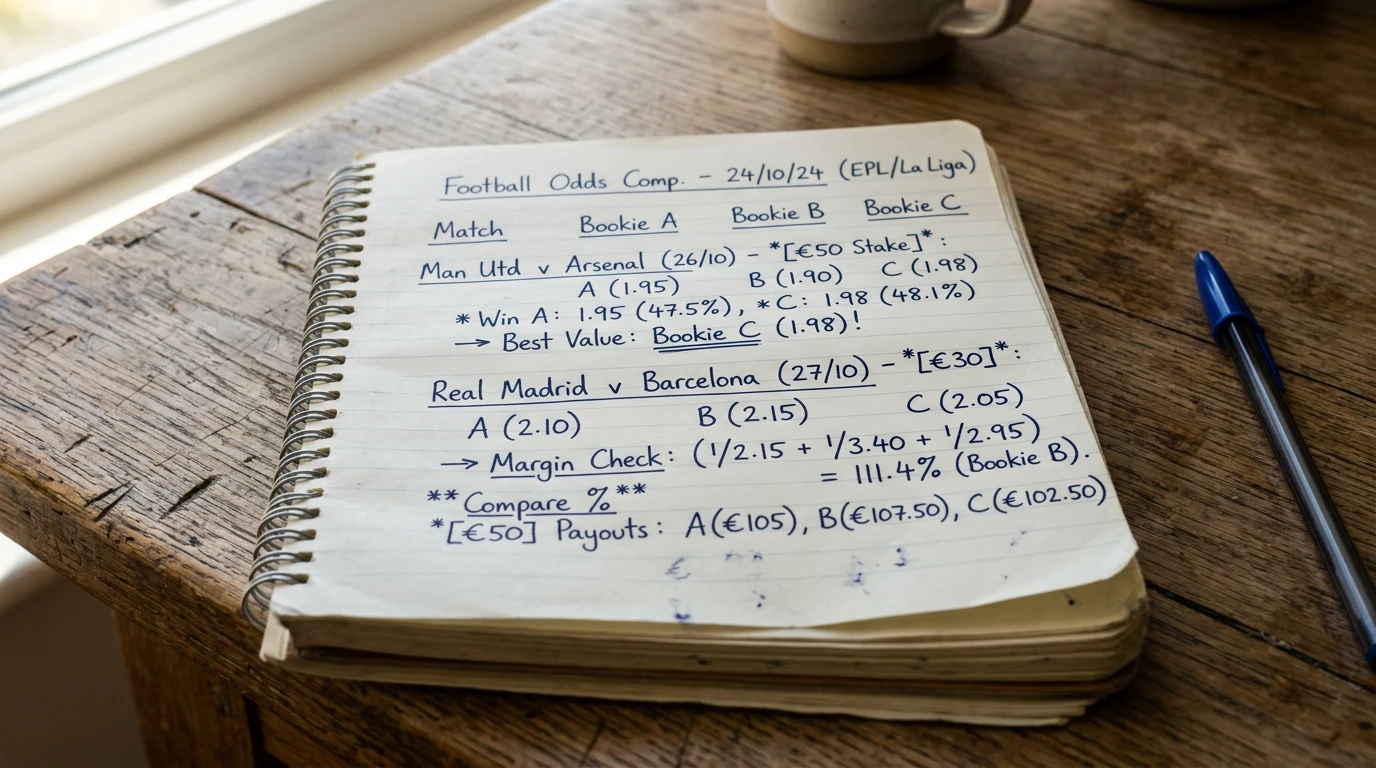 Football Odds Comp. - 24/10/24 (EPL/La Liga)
Match Bookie A Bookie B Bookie C
Man Utd v Arsenal (26/10) - *[€50 Stake]*:
A (1.95) B (1.90) C (1.98)
* Win A: 1.95 (47.5%), * C: 1.98 (48.1%)
→ Best Value: Bookie C (1.98)!
Real Madrid v Barcelona (27/10) - *[€30]*:
A (2.10) B (2.15) C (2.05)
→ Margin Check: (1/2.15 + 1/3.40 + 1/2.95)
= 111.4% (Bookie B).
** Compare % **
*[€50] Payouts: A(€105), B(€107.50), C(€102.50)